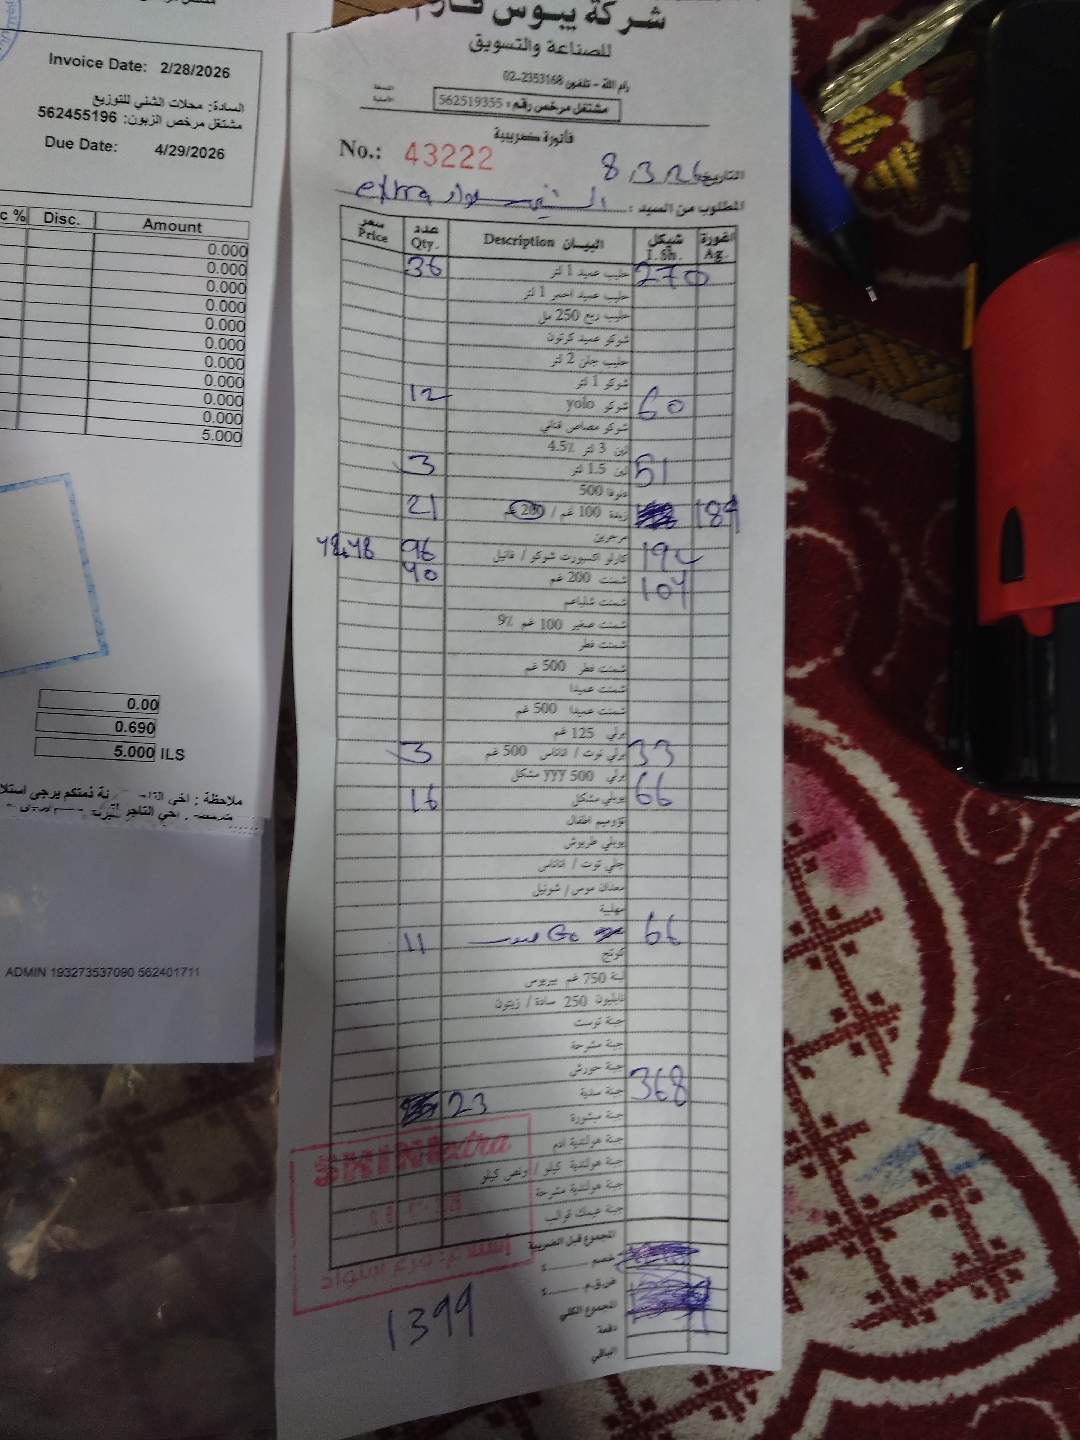 Invoice Date: 2/28/2026
السادة: محلات الشني للتوزيع
مشتغل مرخص الزبون: 562455196
Due Date: 4/29/2026
c % Disc. Amount
0.000
0.000
0.000
0.000
0.000
0.000
0.000
0.000
0.000
0.000
5.000
0.00
0.690
5.000 ILS
ADMIN 193273537090 562401711
شركة بيوس فارم
للصناعة والتسويق
رام الله - تلفون 2353168-02
مشتغل مرخص رقم: 562519355
فاتورة ضريبية
No.: 43222
التاريخ 8.3.26
المطلوب من السيد: extra
سعر Price عدد Qty. البيـــان Description شيكل I. Sh. اغورة Ag.
36 حليب عميد 1 لتر 270
حليب عميد احمر 1 لتر
حليب ربع 250 مل
شوكو عميد كرتون
حليب جلن 2 لتر
شوكو 1 لتر
12 شوكو yolo 60
شوكو مصاص قناني
لبن 3 لتر 4.5%
3 لبن 1.5 لتر 51
500
21 زبدة 100 غم / 200 غم 189
مرجرين
48,48 96 كارلو اكسبورت شوكو / فانيل 192
40 شمنت 200 غم 104
شمنت
شمنت صغير 100 غم 9%
شمنت فطر
شمنت فطر 500 غم
شمنت عميدا
شمنت عميدا 500 غم
برلي 125 غم
3 برلي توت / اناناس 500 غم 33
برلي 500 yyy مشكل
16 يوبلي مشكل 66
اطفال
يوبلي طربوش
جلي توت / اناناس
معدان موس / شوتيل
مهلبية
11 Go 66
كوتج
لبنة 750 غم بيريوس
نابليون 250 سادة / زيتون
جبنة توست
جبنة مشرحة
جبنة حورش
23 جبنة صفدية 368
جبنة مبشورة
جبنة هولندية ادم
جبنة هولندية كيلو / ونص كيلو
جبنة هولندية مشرحة
جبنة عيمك قوالب
المجموع قبل الضريبة
خصم
ض.ق.م
المجموع الكلي
دفعة
الباقي
SHINI extra
1399